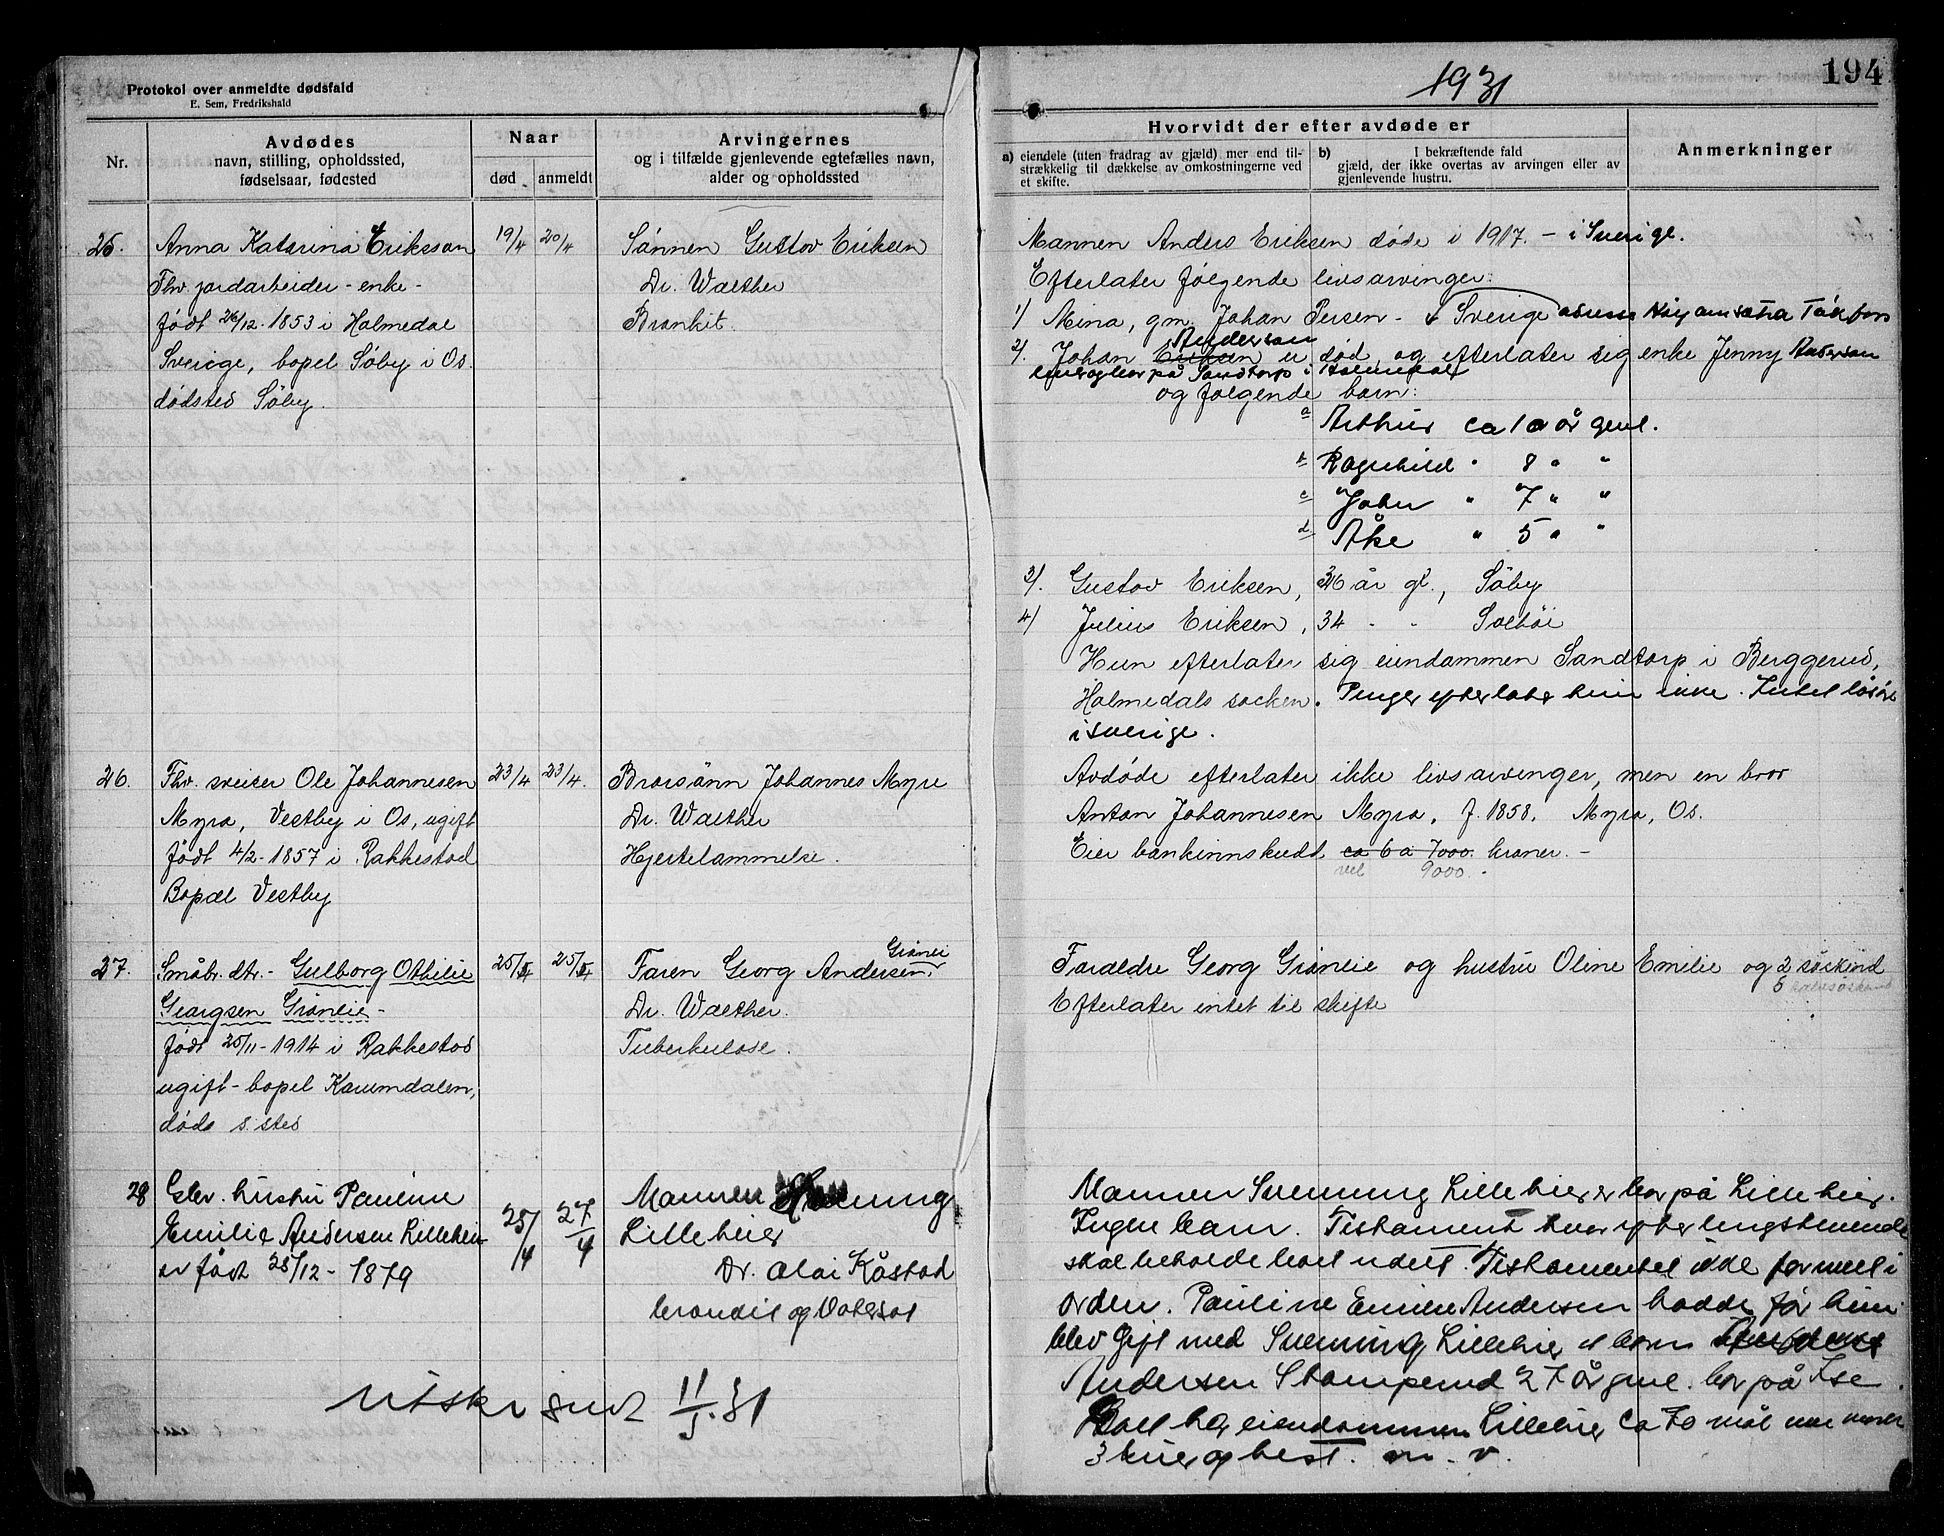 Protokol over anmeldte dødsfald
E. Sem, Fredrikshald
1931
194
Nr.
Avdødes
navn, stilling, opholdssted,
fødselsaar, fødested
Naar
død
anmeldt
Arvingernes
og i tilfælde gjenlevende egtefælles navn,
alder og opholdssted
Hvorvidt der efter avdøde er
a) eiendele (uten fradrag av gjæld) mer end til-
strækkelig til dækkelse av omkostningerne ved
et skifte.
b) I bekræftende fald
gjæld, der ikke overtas av arvingen eller av
gjenlevende hustru.
Anmerkninger
25.
Anna Katarina Eriksson
Fhv. jordarbeider-enke-
født 26/12-1853 i Holmedal
Sverige, bopel Søby i Os.
dødsted Søby.
19/4
20/4
Sønnen Gustav Eriksen
Dr. Walther
Bronkit.
Mannen Anders Eriksen døde i 1917. - i Sverige.
Efterlater følgende livsarvinger:
1) Mina, gm. Johan Persen - Sverige adresse
Anderson
2). Johan Eriksen er død, og efterlater sig enke Jenny Anderson
på Sandtorp i Holmedal
og følgende barn:
a Arthur ca 10 år gml.
b Ragnhild " 8 " "
c John " 7 " "
d Åke " 5 " "
3). Gustav Eriksen, 36 år gl., Søby
4) Julius Eriksen, 34 - - Soltøi
Hun efterlater sig eiendammen Sandtorp i Berggerud,
Holmedals socken. Penger efterlater hun ikke. Intet løsøre
i Sverige.
26.
Fhv. sveiser Ole Johannesen
Myra, Vestby i Os, ugift
født 4/2-1857 i Rakkestad
Bopæl Vestby
23/4
23/4.
Brorsønn Johannes Myre
Dr. Walther
Hjertelammelse.
Avdøde efterlater ikke livsarvinger, men en bror
Anton Johannesen Myra, f. 1858. Myra, Os.
Eier bankinnskudt ca 6 a 7000. kroner. -
vel 9000. -
27.
Småbr. dtr. - Gulborg Othilie
Georgsen Grønlie -
født 25/11-1914 i Rakkestad
ugift - bopel Karumdalen,
døds s. sted
25/4
25/4
Grønlie
Faren Georg Andersen.
Dr. Walther.
Tuberkulose.
Foreldre Georg Grønlie og hustru Oline Emilie og 2 søskend
5 halvsøskend
Efterlater intet til skifte
28
Gbr. hustru Pauline
Emilie Andersen Lilleheier
er født 28/12 - 1879
25/4
27/4
Mannen
Lilleheier
Dr. Olai Kåstad
brondit og
Mannen Svenning Lilleheier bor på Lilleheier.
Ingen barn. Testament hvor efter lengstlevende
skal beholde boet udelt. Testamentet ikke formelt i
orden. Pauline Emilie Andersen hadde før hun
blev gift med Svenning Lilleheier et barn
Andersen Stomperud 27 år gml. bor på Ise.
Boet har eiendommen Lilleheier ca 70 mål
3 kuer og hest. m. v.
utskr sendt 11/5.31